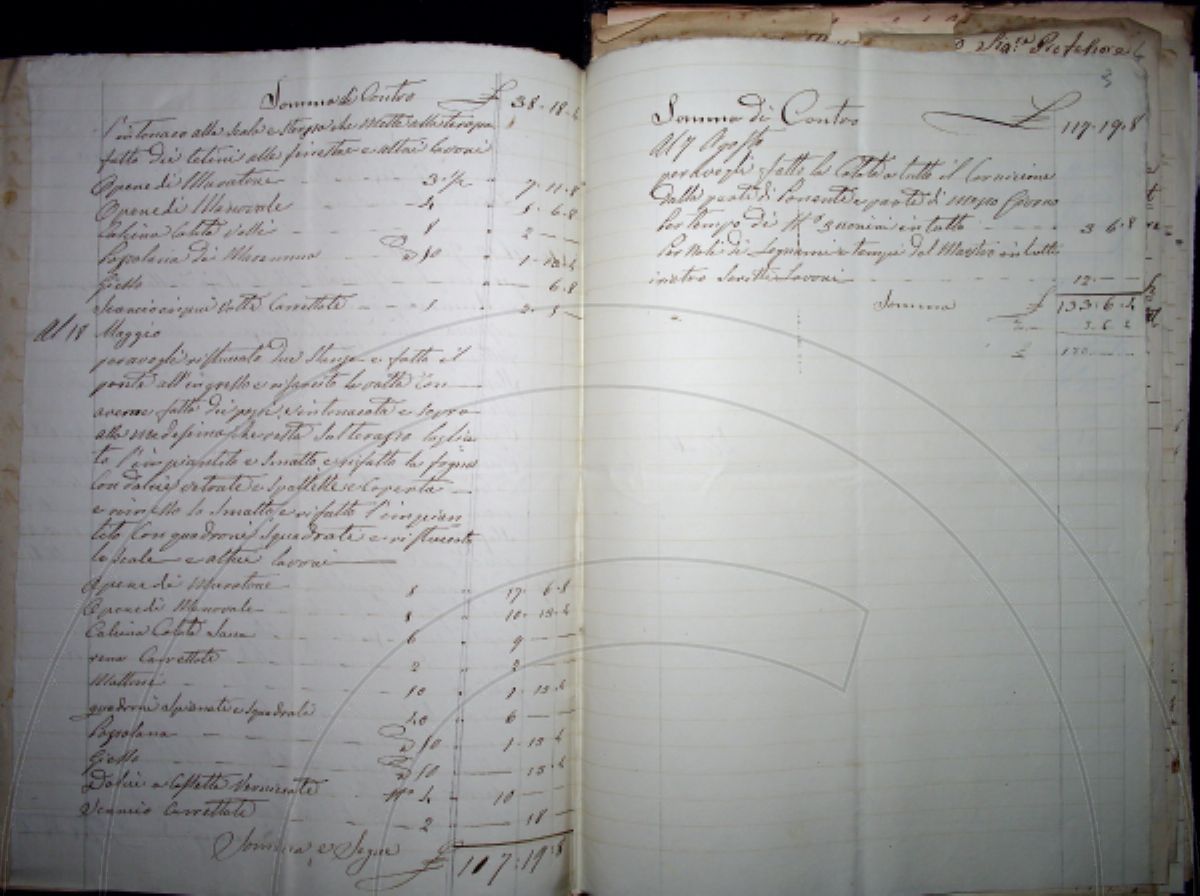 Somma di Contro £ 38.18.4
l'intonaco alla scala e stanza che mette alla terazza
fatto dei telini alle finestre e altri lavori
Opere di Muratore 3 1/2 " 7.11.8
Opere di Manovale 4 " 5.6.8
Calcina Colata 1 " 2 —
Pozolana di Maremma 10 " 1.13.4
Giesso " — 6.8
Carrettate 1 " 2.5 —
Al 18 Maggio
per avegli ristuccato due stanze e fatto il
ponte all'ingresso e risarcito la volta Con
averne fatto dei pezzi e intonacata e sopra
alla medesima che resta sul terazzo taglia
to l'impiantito e smalto e rifatto la fogna
Con docci vetriate e spallette e Coperta
e rimesso lo smalto e rifatto l'impian
tito Con quadroni squadrati e ristuccato
le scale e altri lavori
Opere di Muratore 8 " 17.6.8
Opere di Manovale 8 " 10.13.4
Calcina Colata 6 " 9 —
rena Carrettate 2 " 2 —
Mattoni 10 " 1.13.4
quadroni spianati e squadrati 40 " 6 —
Pozolana 10 " 1.13.4
Giesso 10 — 13.4
Docci a Cassetta Verniciate N° 4 " 10 —
Scarico Carrettate 2 — 18 —
Somma e Segue £ 117.19.8
Siga. 
3
Somma di Contro £ 117.19.8
Al 7 Agosto
per avegli fatto la Colata a tutto il Cornicione
dalla parte di Ponente e parte di mezzo Giorno
per tempo di N° 3 uomini in tutto 3.6.8
Per Noli di Legnami e tempo del Maestro in tutto
12. —
Somma £ 133.6.4
£ 3.6.4
£ 130. — —